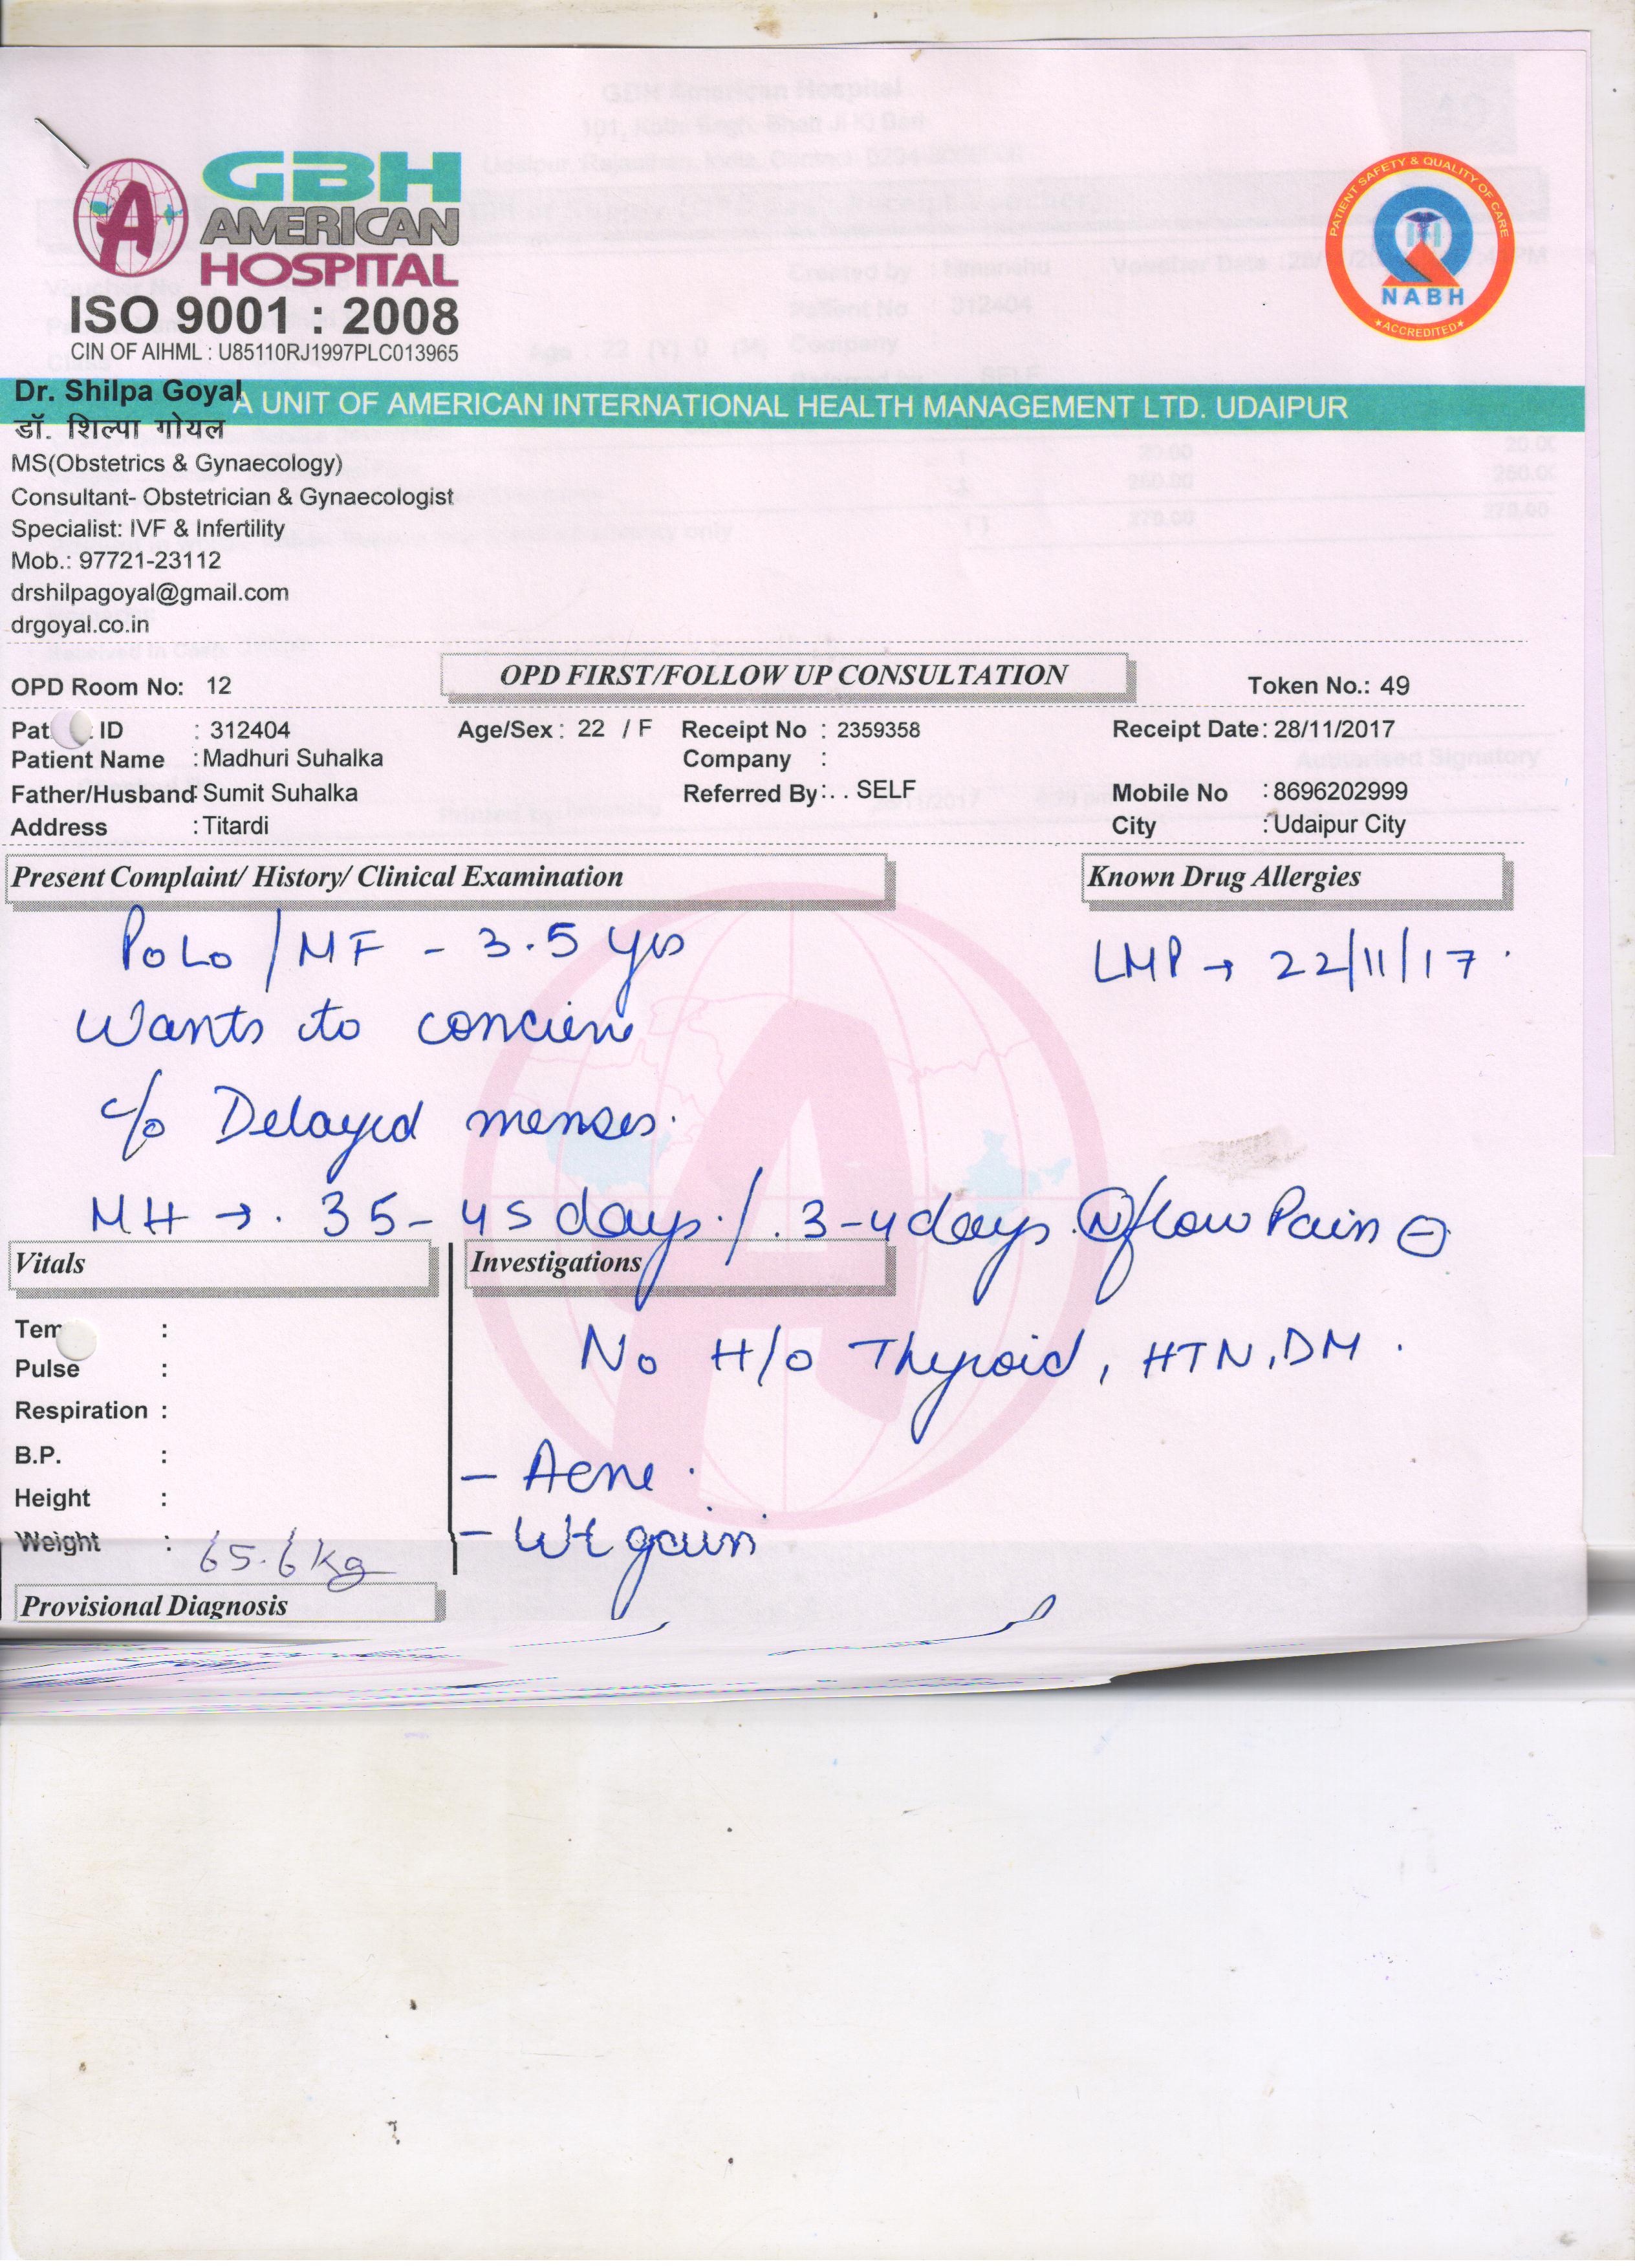 GBH
AMERICAN
HOSPITAL
ISO 9001 : 2008
CIN OF AIHML : U85110RJ1997PLC013965
PATIENT SAFETY & QUALITY OF CARE
NABH
★ACCREDITED★
A UNIT OF AMERICAN INTERNATIONAL HEALTH MANAGEMENT LTD. UDAIPUR
Dr. Shilpa Goyal
डॉ. शिल्पा गोयल
MS(Obstetrics & Gynaecology)
Consultant- Obstetrician & Gynaecologist
Specialist: IVF & Infertility
Mob.: 97721-23112
drshilpagoyal@gmail.com
drgoyal.co.in
OPD Room No: 12 OPD FIRST/FOLLOW UP CONSULTATION Token No.: 49
ID : 312404 Age/Sex : 22 / F Receipt No : 2359358 Receipt Date: 28/11/2017
Patient Name : Madhuri Suhalka Company :
Father/Husband: Sumit Suhalka Referred By: . . SELF Mobile No : 8696202999
Address : Titardi City : Udaipur City
Present Complaint/ History/ Clinical Examination Known Drug Allergies
PoLo / MF - 3.5 yrs LMP → 22/11/17.
Wants to concieve
c/o Delayed menses.
MH → . 35-45 days. / . 3-4 days. (N) flow Pain ⊖
Vitals Investigations
Pulse :
No H/o Thyroid, HTN, DM.
Respiration :
B.P. :
- Acne.
Height :
Weight : 65.6 kg - Wt gain
Provisional Diagnosis